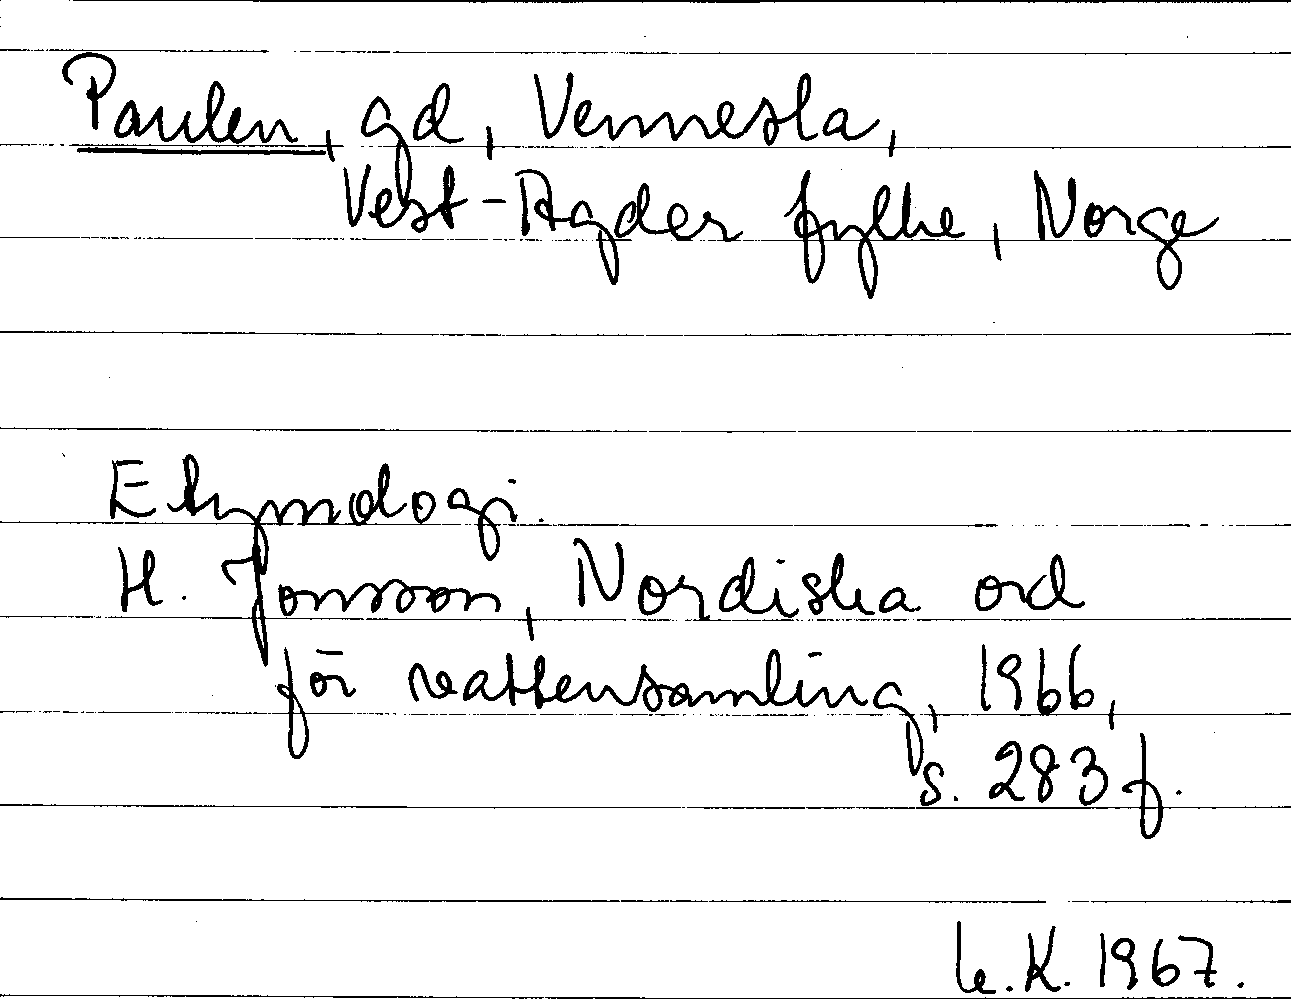 Paulen, gd, Vennesla,
Vest-Agder fylke, Norge
Etymologi.
H. Jonsson, Nordiska ord
för vattensamling, 1966,
s. 283 f.
K. 1967.